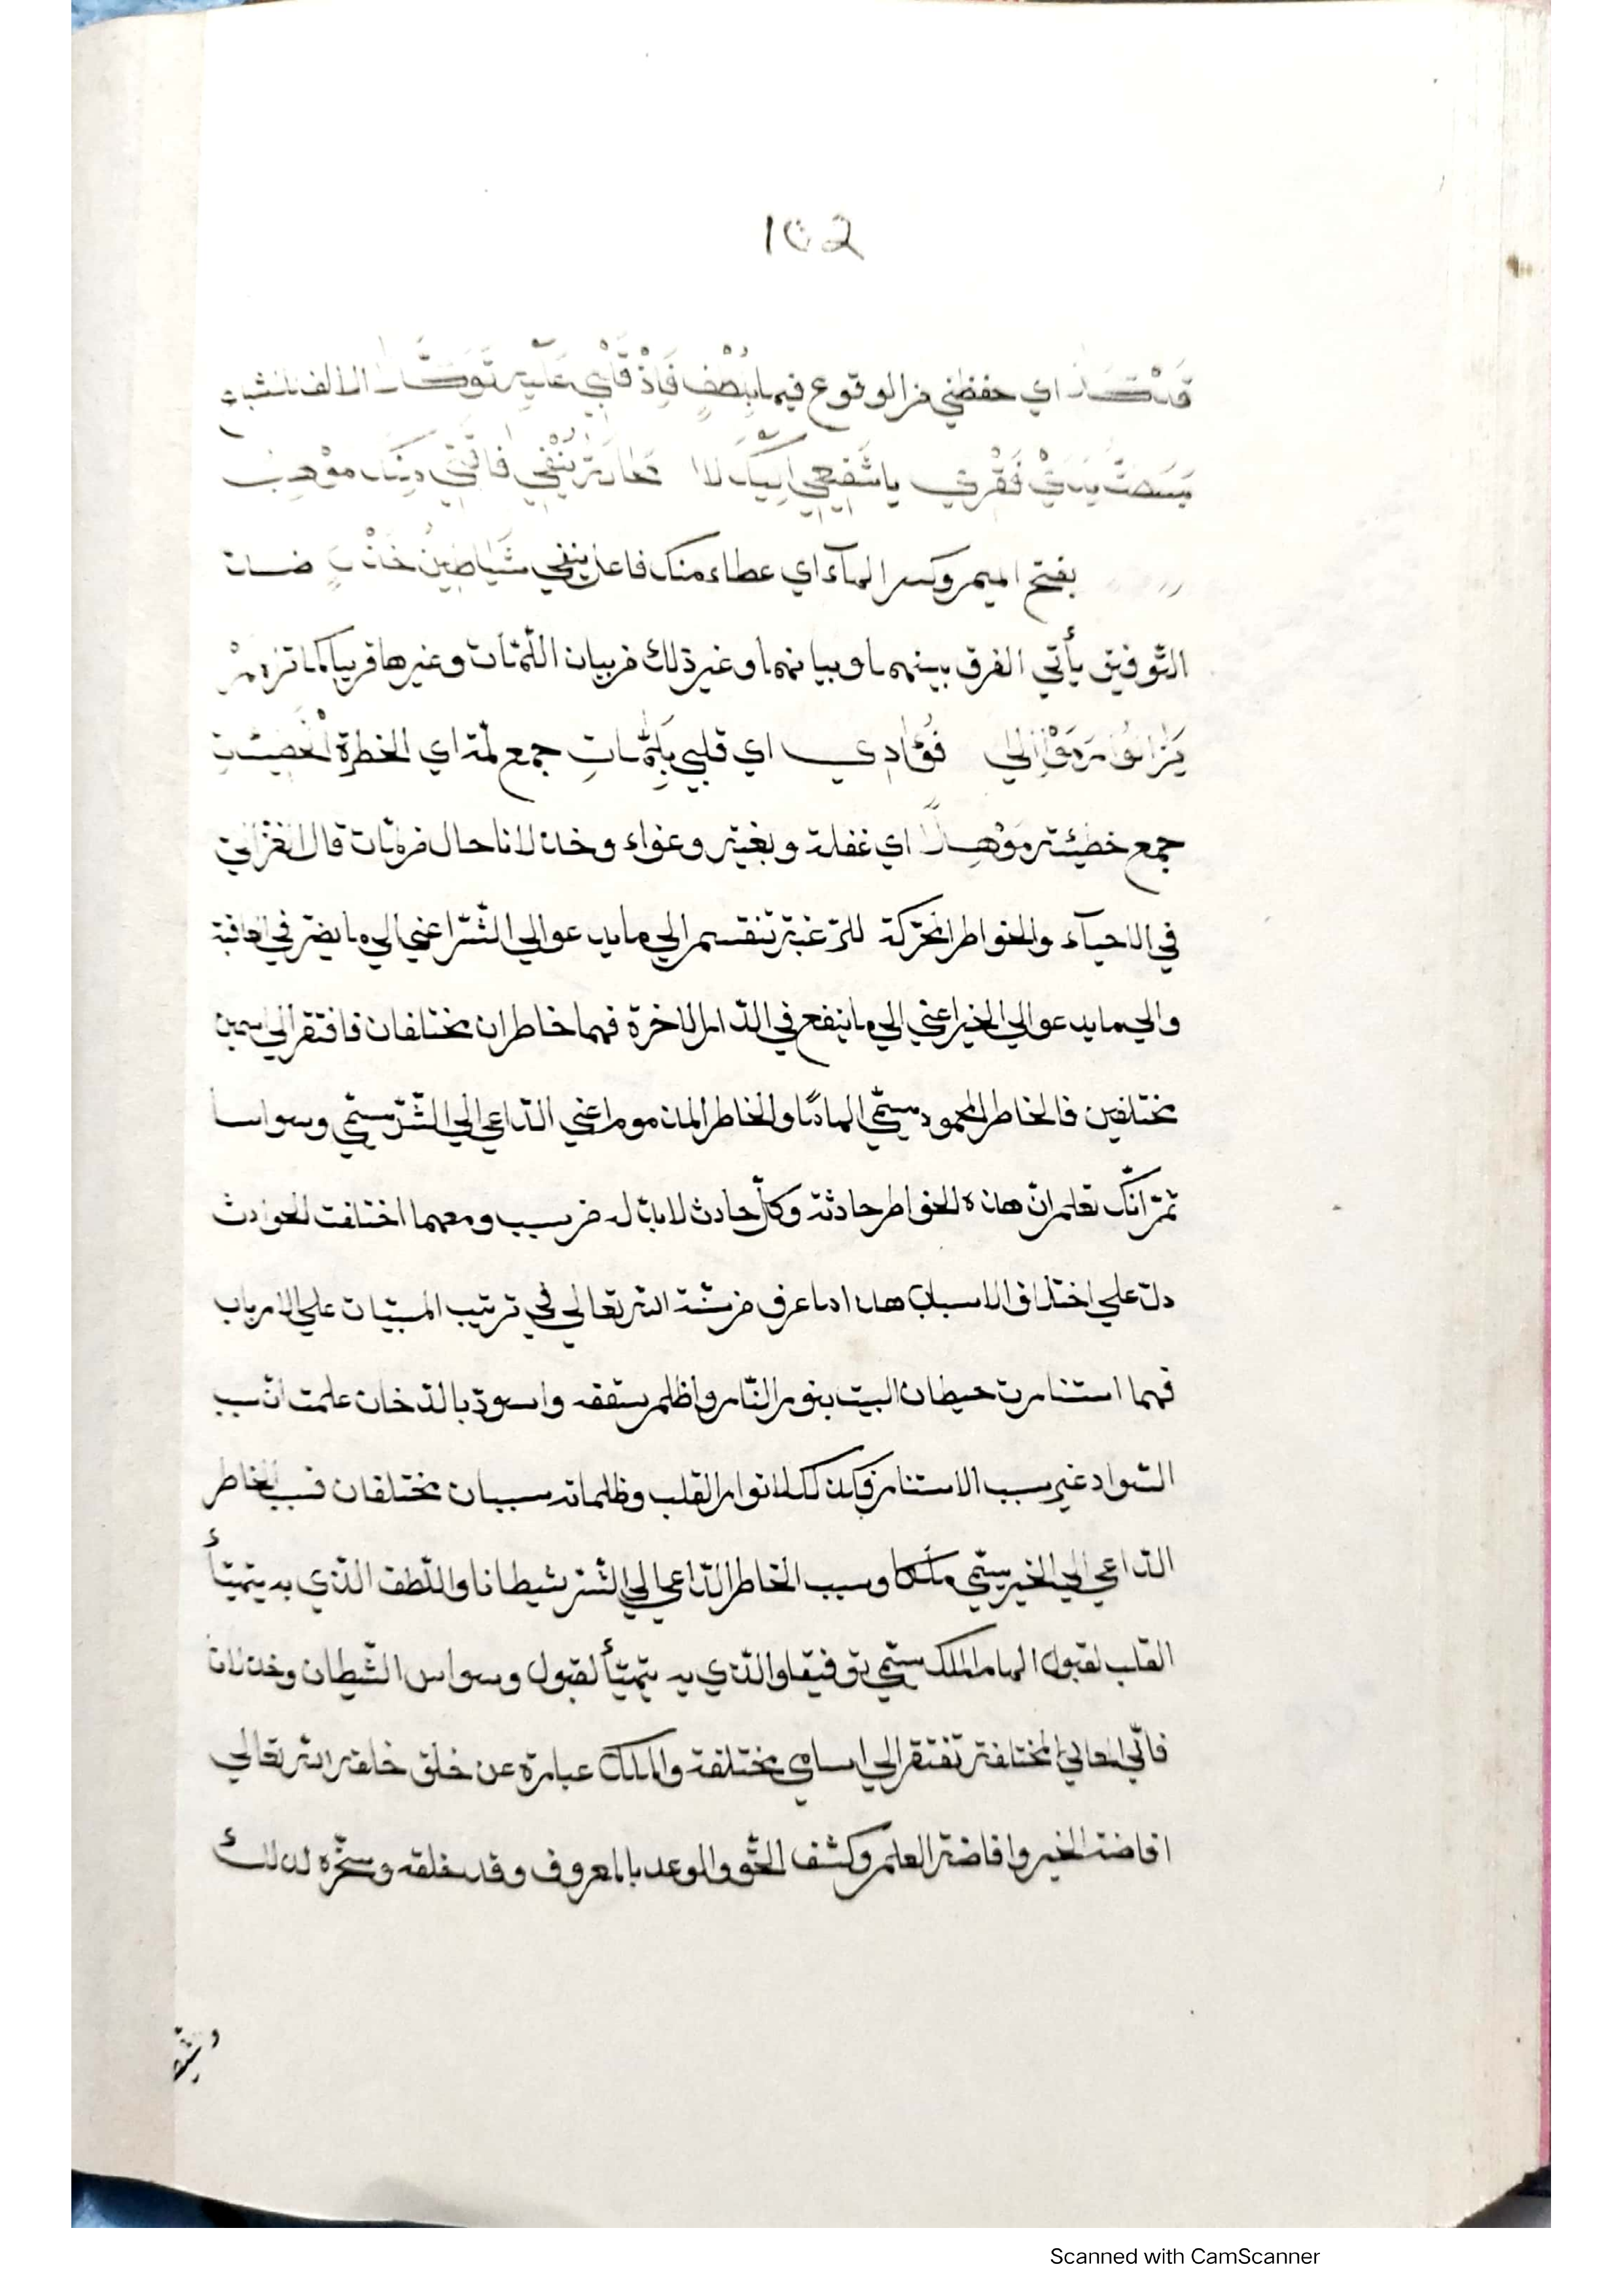 ١٥٢
اي حفظني من الوقوع فيما بلطف فاذ قلبي عليه توكلا الالف للاشباع
بسطت يدي فقري يا شفيعي اليك لا فانني منك موهب
بفتح الميم وكسر الهآء اي عطاء منك فاعل ينفي شياطين خذلان ضدان
التوفيق يأتي الفرق بينهما وبيانهما وغير ذلك من بيان اللّمّات وغيرها قريبا كما تراه من
فؤادي اي قلبي بلمّات جمع لمّة اي الخطرة الخطيئات
جمع خطيئة موهلا اي غفلة وبغية وغواء وخذلانا حال من لمّات قال الغزالي
في الاحيآء والخواطر المحرّكة للرّغبة تنقسم الي ما يدعو الي الشّرّ اعني الي ما يضرّ في العاقبة
والي ما يدعو الي الخير اعني الي ما ينفع في الدّار الاخرة فهما خاطران مختلفان فافتقر الي اسمين
مختلفين فالخاطر المحمود يسمّي الهاما والخاطر المذموم اعني الدّاعي الي الشّرّ يسمّي وسواسا
ثمّ انّك تعلم انّ هذه الخواطر حادثة وكلّ حادث لا بدّ له من سبب ومهما اختلفت الحوادث
دلّ علي اختلاف الاسباب هذا ما عرف من سنّة الله تعالي في ترتيب المسبّبات علي الاسباب
فهما استنارت حيطان البيت بنور النّار واظلم سقفه واسودّ بالدّخان علمت انّ سبب
السّواد غير سبب الاستنارة وكذلك لانوار القلب وظلماته سببان مختلفان فسبب الخاطر
الدّاعي الي الخير يسمّي ملكا وسبب الخاطر الدّاعي الي الشّرّ شيطانا واللّطف الّذي به يتهيّأ
القلب لقبول الهام الملك يسمّي توفيقا والّذي به يتهيّأ لقبول وسواس الشّيطان وخذلانا
فانّ المعاني المختلفة تفتقر الي اسامي مختلفة والملك عبارة عن خلق خلقه الله تعالي
افاضة الخير وافاضة العلم وكشف الحقّ والوعد بالمعروف وقد خلقه وسخّره لذلك